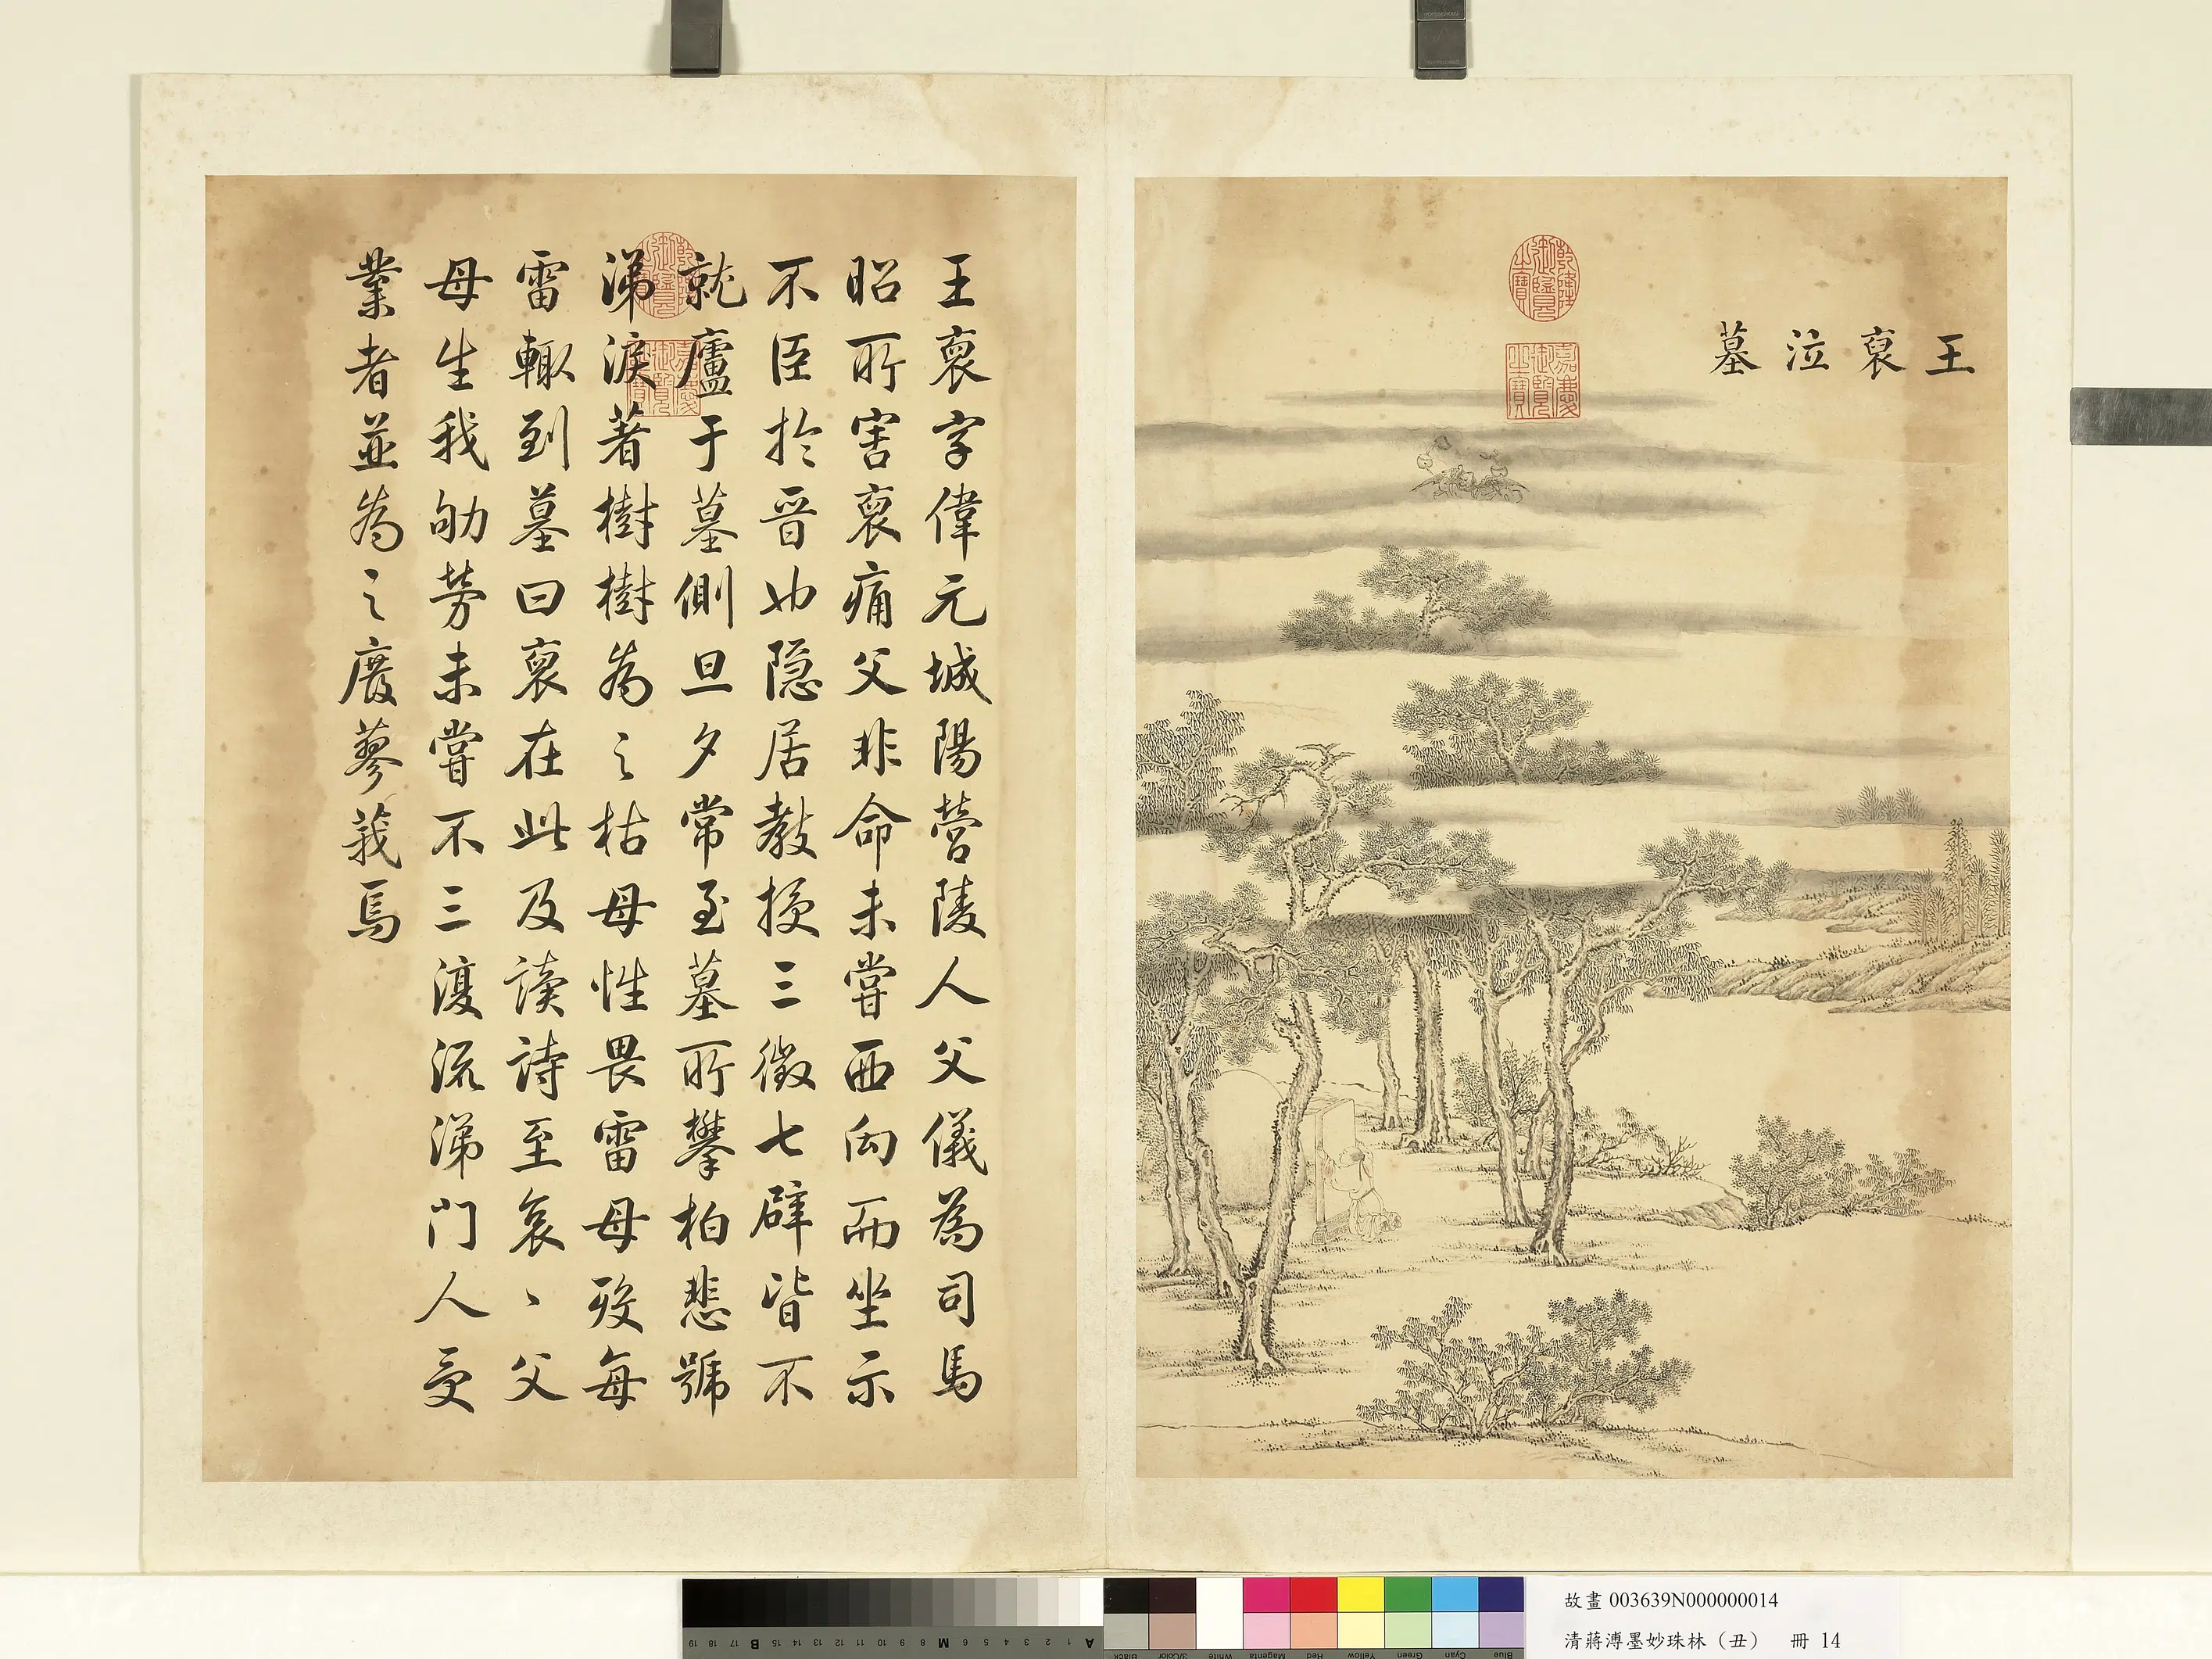 王裒泣墓
乾隆御覽之寶
嘉慶御覽之寶
王裒字偉元城陽營陵人父儀為司馬
昭所害裒痛父非命未嘗西向而坐示
不臣於晉也隱居教授三徵七辟皆不
就廬于墓側旦夕常至墓所攀柏悲號
涕淚著樹樹為之枯母性畏雷母歿每
雷輒到墓曰裒在此及讀詩至哀、父
母生我劬勞未嘗不三復流涕門人受
業者並為之廢蓼莪焉
故畫 003639N000000014
清蔣溥墨妙珠林（丑） 冊 14